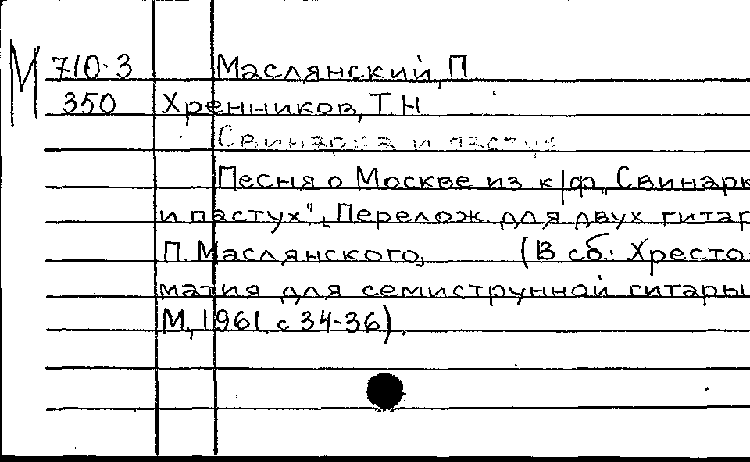 М 710-3 Маслянский, П
350 Хренников, Т.Н
Свинарка и пастух
Песня о Москве из к/ф „Свинарк
и пастух". Перелож. для двух гитар
П. Маслянского, (В сб.: Хресто-
матия для семиструнной гитары
М, 1961. с 34-36).